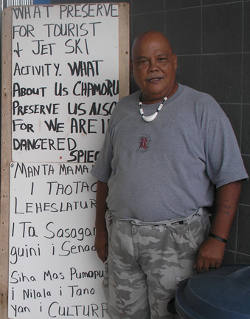 WHAT PRESERVE
FOR TOURIST
& JET SKI
ACTIVITY. WHAT
ABOUT US CHAMORU
PRESERVE US ALSO
FOR WE ARE
DANGERED
SPIE
MANTA MAMA
I TAOTAO
LEHESLATU
I TA SASAGAN
guini i SENA
SIHA MAS PUMOPU
i Nilala i TANO
YAN i CULTURA